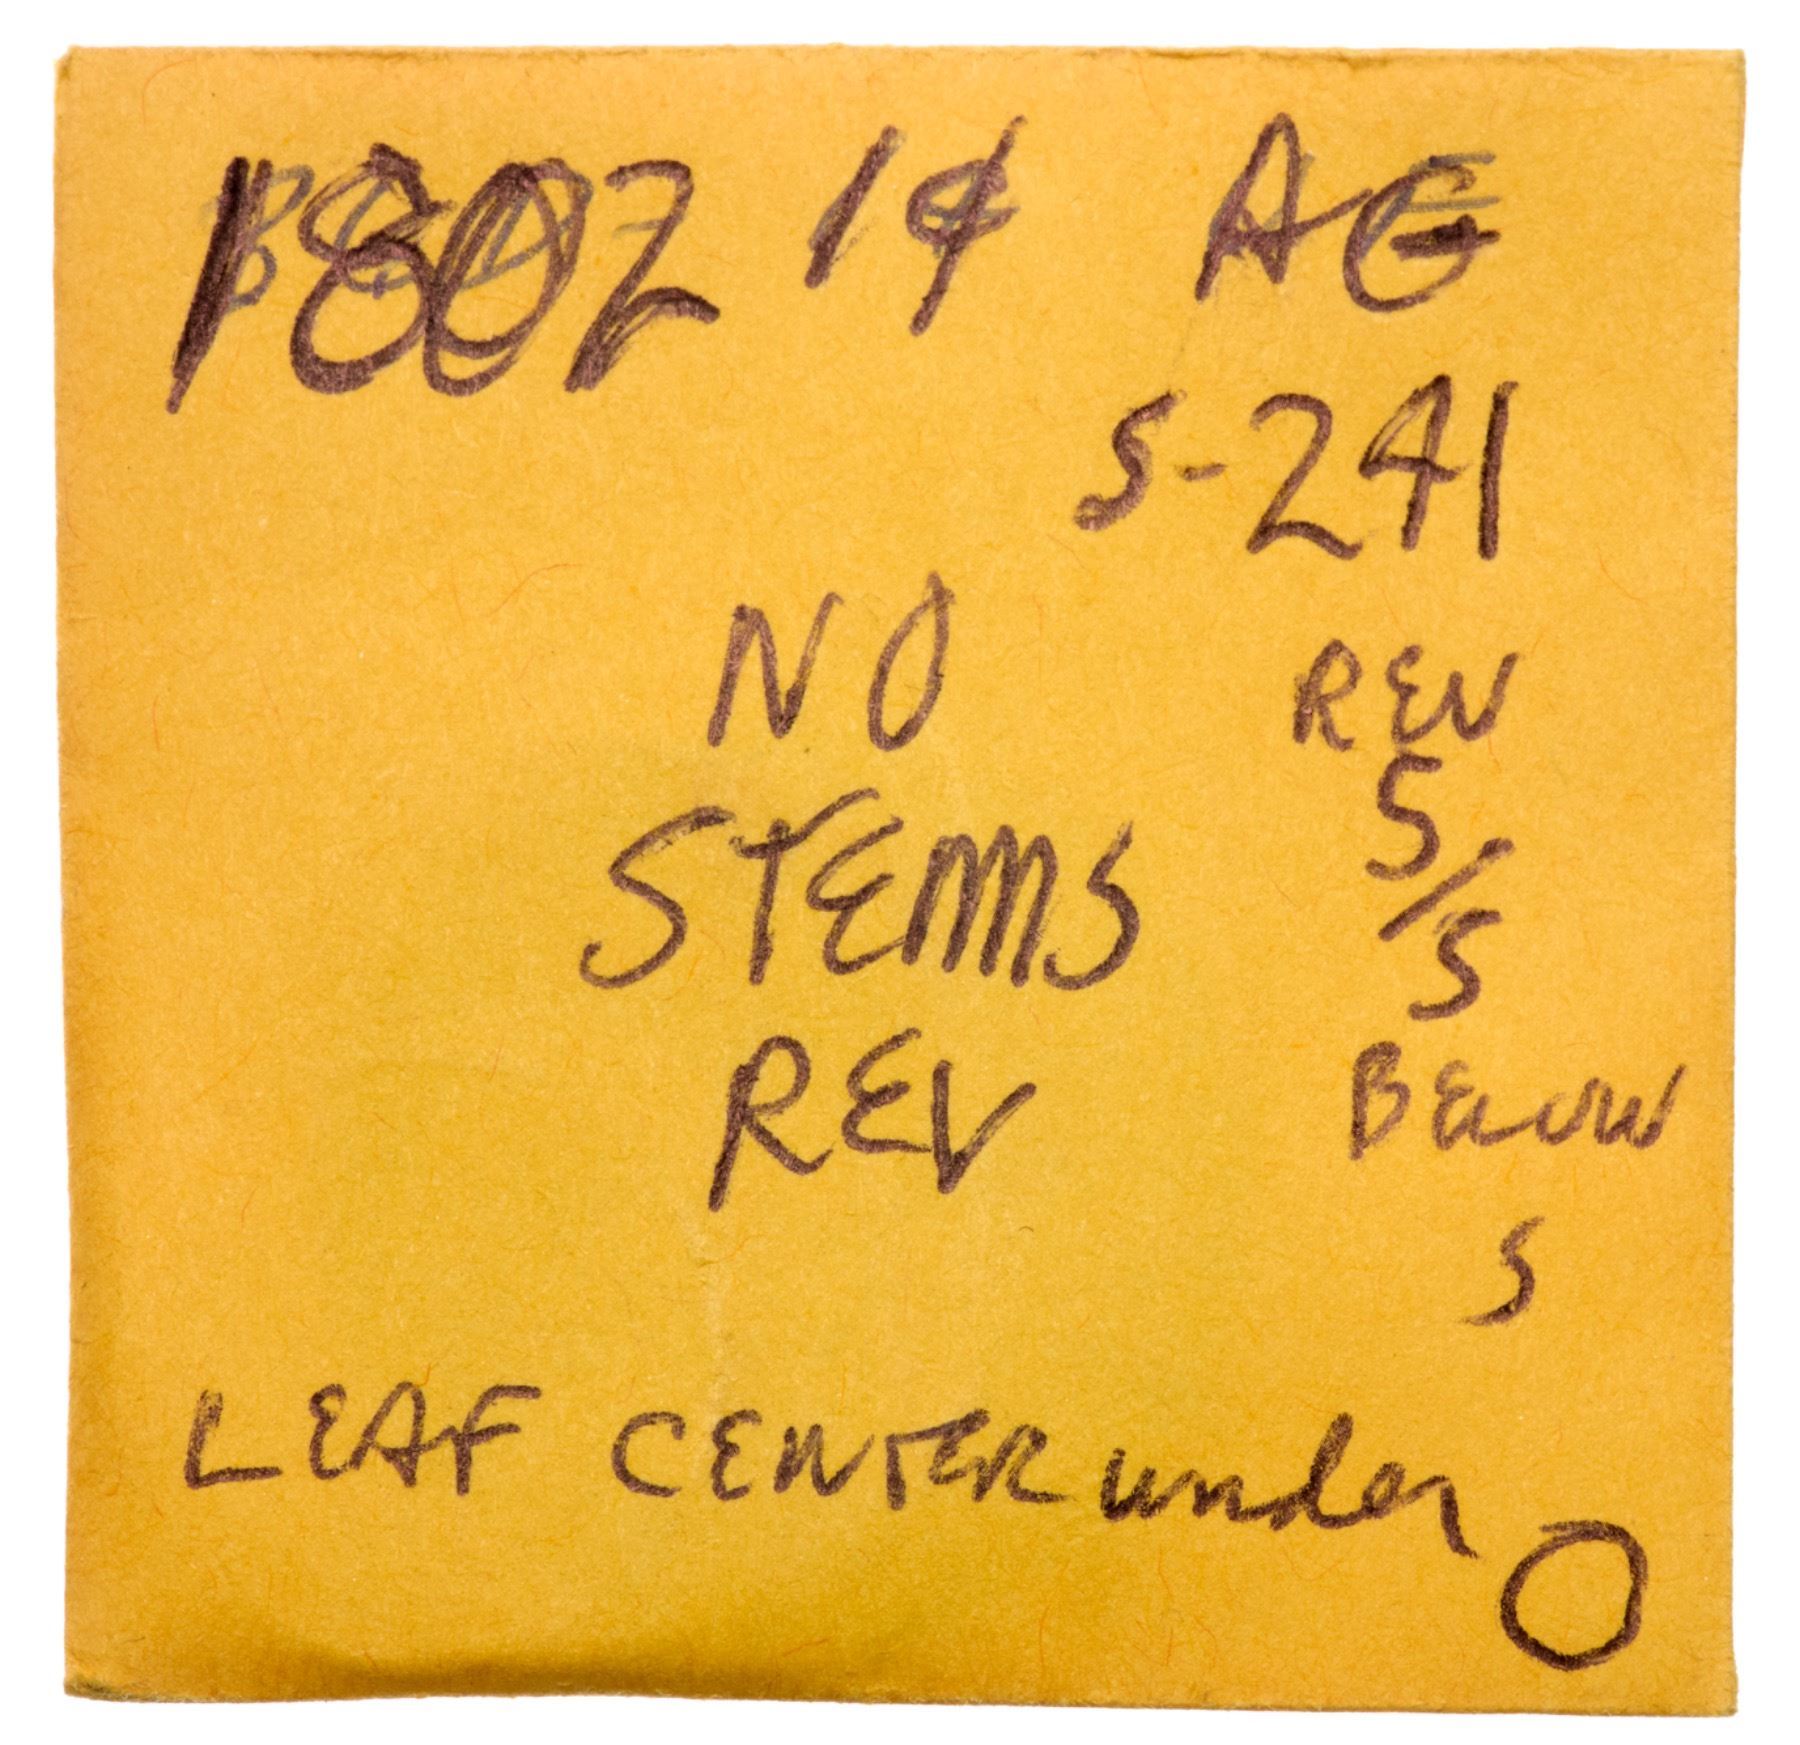 1802 1¢ AG
S-241
NO
STEMS
REV
REV
S/S
BELOW
S
LEAF CENTER under
O